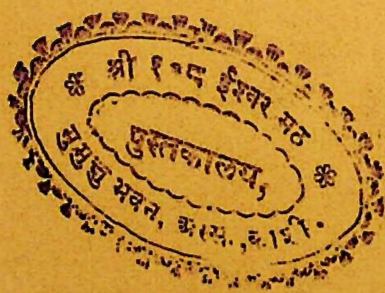 * श्री १०८ ईश्वर मठ *
पुस्तकालय,
मुमुक्षु भवन, अस्सी, काशी.